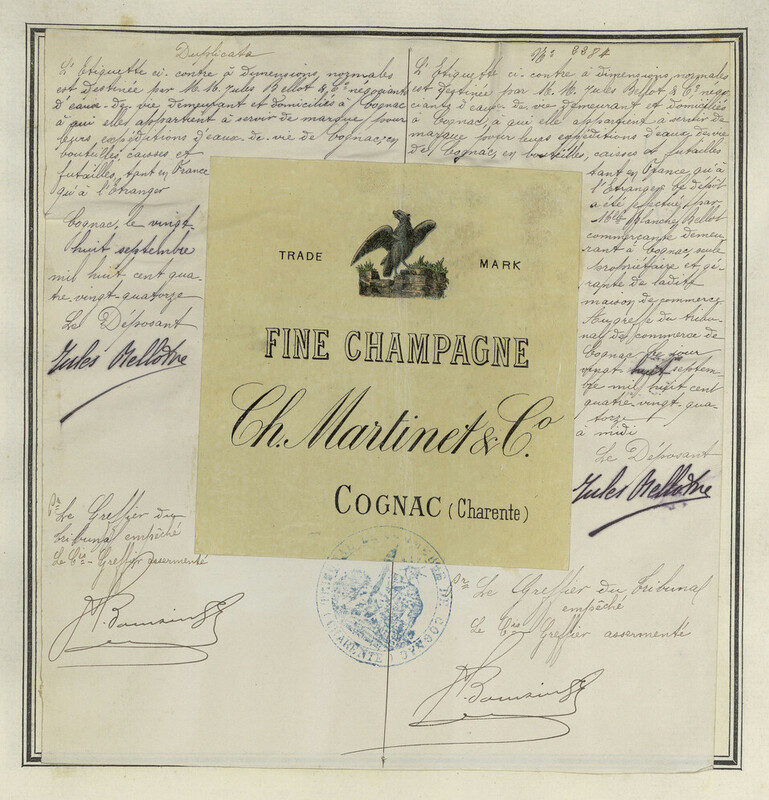 Duplicata
L'Etiquette ci-contre à dimensions normales
est destinée par M.M. Jules Bellot & Cie négociants
d'eaux-de-vie demeurant et domiciliés à Cognac
à qui elle appartient à servir de marque pour
leurs expéditions d'eaux-de-vie de Cognac, en
bouteilles, caisses et
futailles, tant en France
qu'à l'Etranger
Cognac, le vingt-
huit septembre
mil huit cent qua-
tre-vingt-quatorze
Le Déposant
Jules Bellot
Pr Le Greffier du
Tribunal empêché
Le Cis-Greffier assermenté
TRADE MARK
FINE CHAMPAGNE
Ch. Martinet & Co.
COGNAC (Charente)
TRIBUNAL DE COMMERCE DE COGNAC
(CHARENTE)
No 3384
L'Etiquette ci-contre à dimensions normales
est destinée par M.M. Jules Bellot & Cie négo-
ciants d'eaux-de-vie demeurant et domiciliés
à Cognac, à qui elle appartient à servir de
marque pour leurs expéditions d'eaux-de-vie
de Cognac, en bouteilles, caisses et futailles
tant en France qu'à
l'Etranger. Ce dépôt
a été effectué par
Blanche Bellot
commerçante demeu-
rant à Cognac, seule
propriétaire et gé-
rante de ladite
maison de commerce
Au greffe du tribu-
nal de commerce de
Cognac ce jour
vingt huit septem-
bre mil huit cent
quatre-vingt-qua-
torze
à midi
Le Déposant
Jules Bellot
Pr Le Greffier du Tribunal
empêché
Le Cis Greffier assermenté